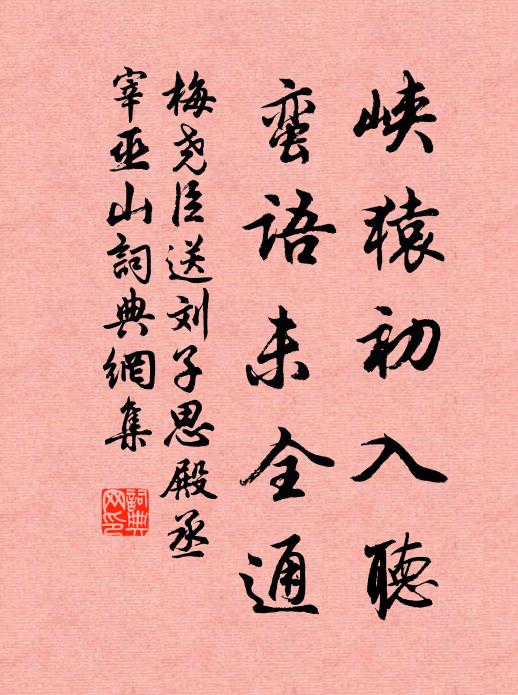 峡猿初入聽
蛮语未全通
梅尧臣送刘子思殿丞
宰巫山詞典網集
詞典
网印